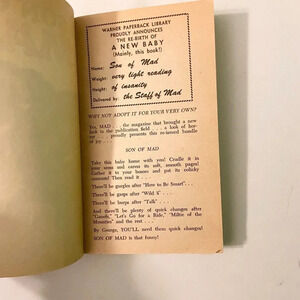 WARNER PAPERBACK LIBRARY
PROUDLY ANNOUNCES
THE RE-BIRTH OF
A NEW BABY
(Mainly, this book!)
Name: Son of Mad
Weight: very light reading
Height: of insanity
Delivered by: the Staff of Mad
WHY NOT ADOPT IT FOR YOUR VERY OWN?
Yes, MAD . . . the magazine that brought a new
look to the publication field . . . a look of hor-
ror . . . proudly presents this re-issued bundle
of joy . . .
SON OF MAD
Take this baby home with you! Cradle it in
your arms and caress its soft, smooth pages!
Gather it to your bosom and pat its colicky
contents! Then read it . . .
There'll be gurgles after "How to Be Smart". . .
There'll be gasps after "Wild ½". . .
There'll be burps after "Talk". . .
And there'll be plenty of quick changes after
"Let's Go for a Ride," "Miltie of the
Mounties" and the rest . . .
By George, YOU'LL need them quick changes!
SON OF MAD is that funny!